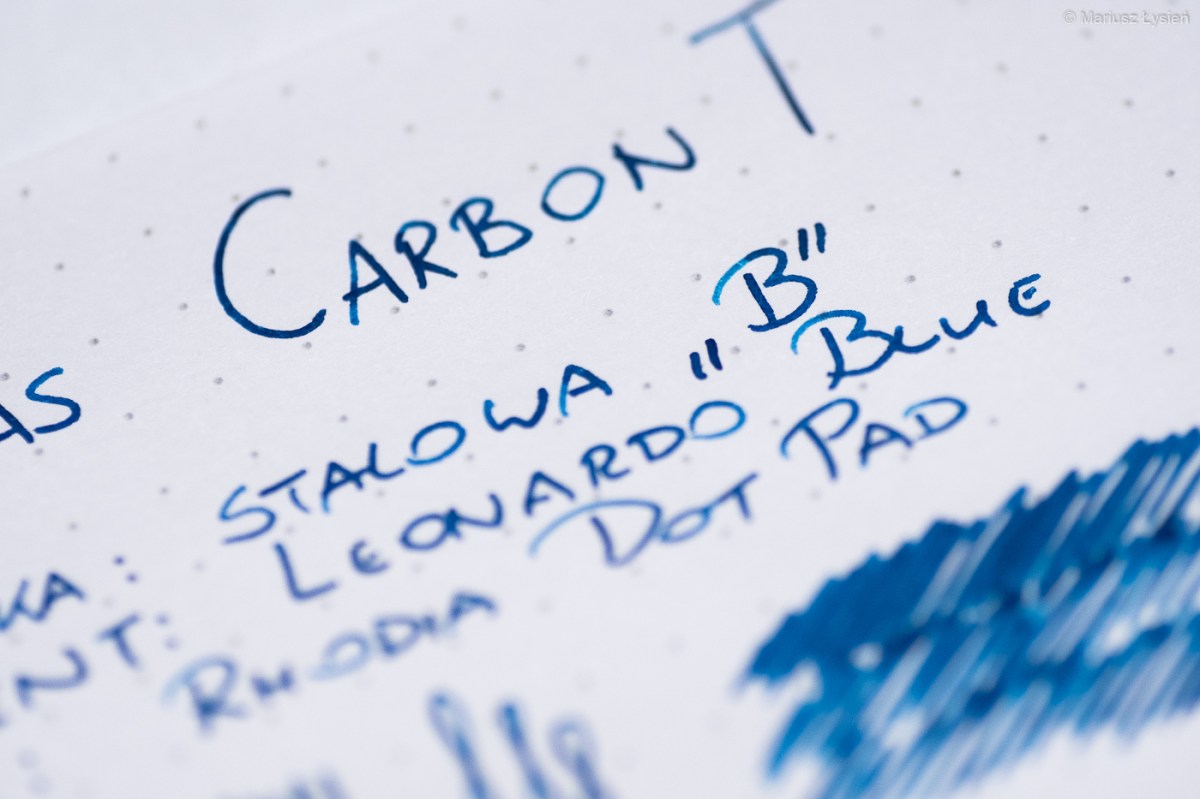 © Mariusz Łysień
CARBON T
AS
KA: STALOWA „B”
NT: LEONARDO BLUE
RHODIA DOT PAD